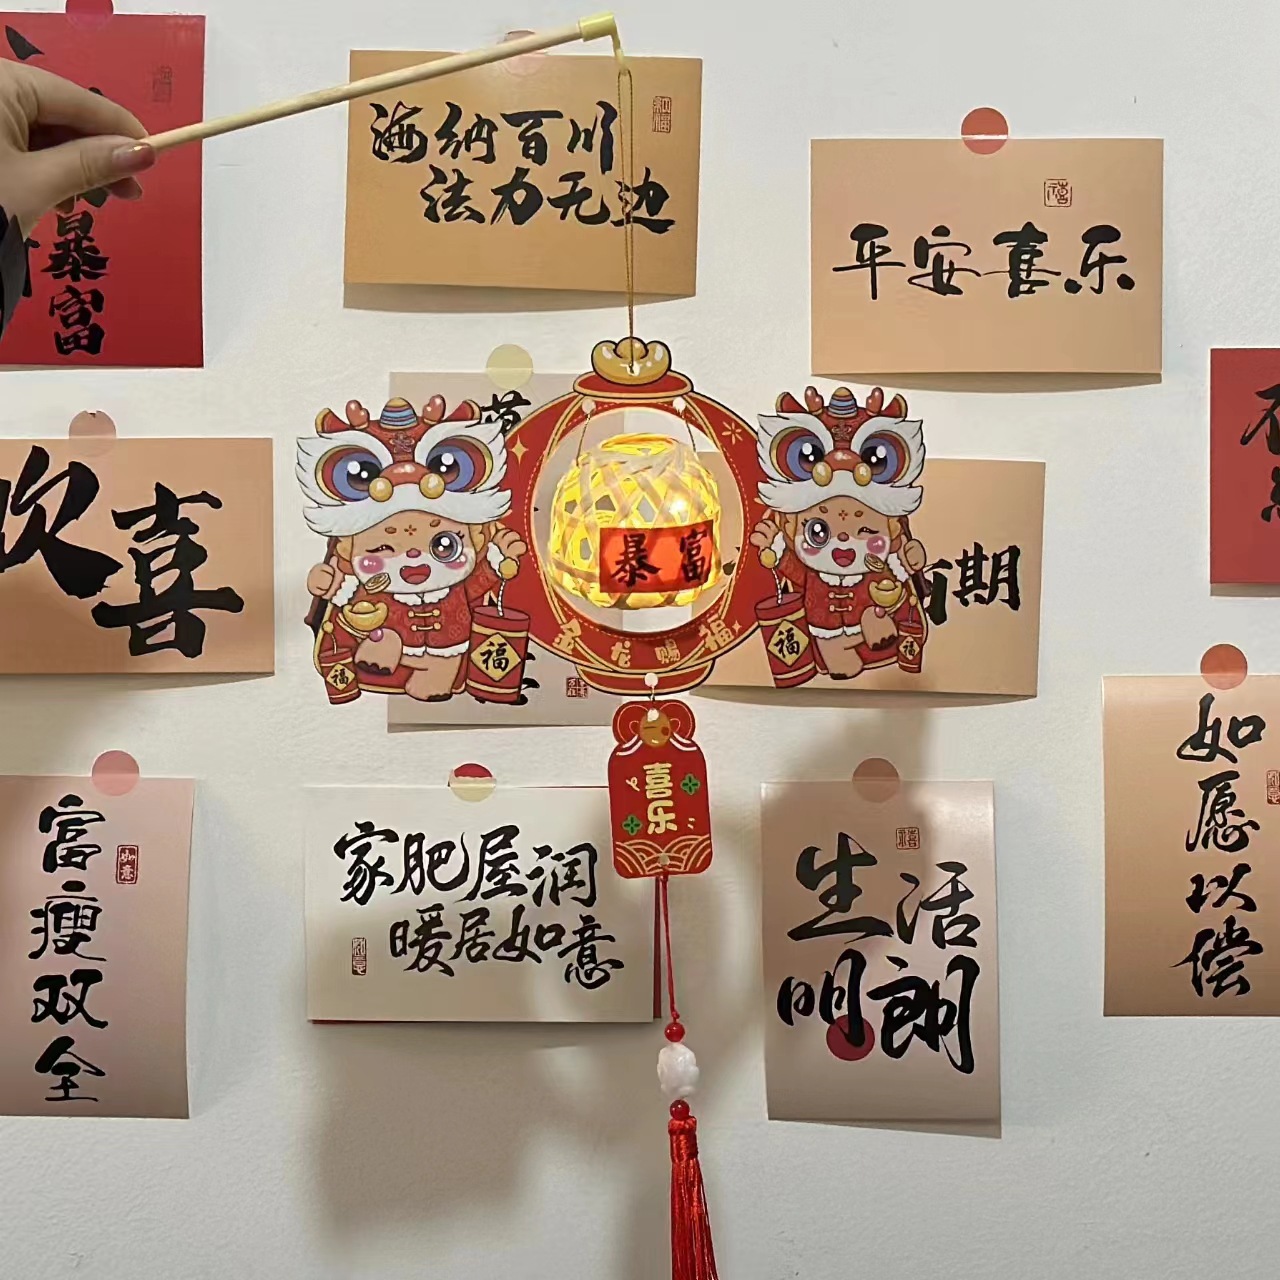 暴富
海纳百川
法力无边
平安喜乐
欢喜
暴富
金龙赐福
福
福
福
福
有期
喜乐
富瘦双全
如意
家肥屋润
暖居如意
生活
明朗
如愿以偿